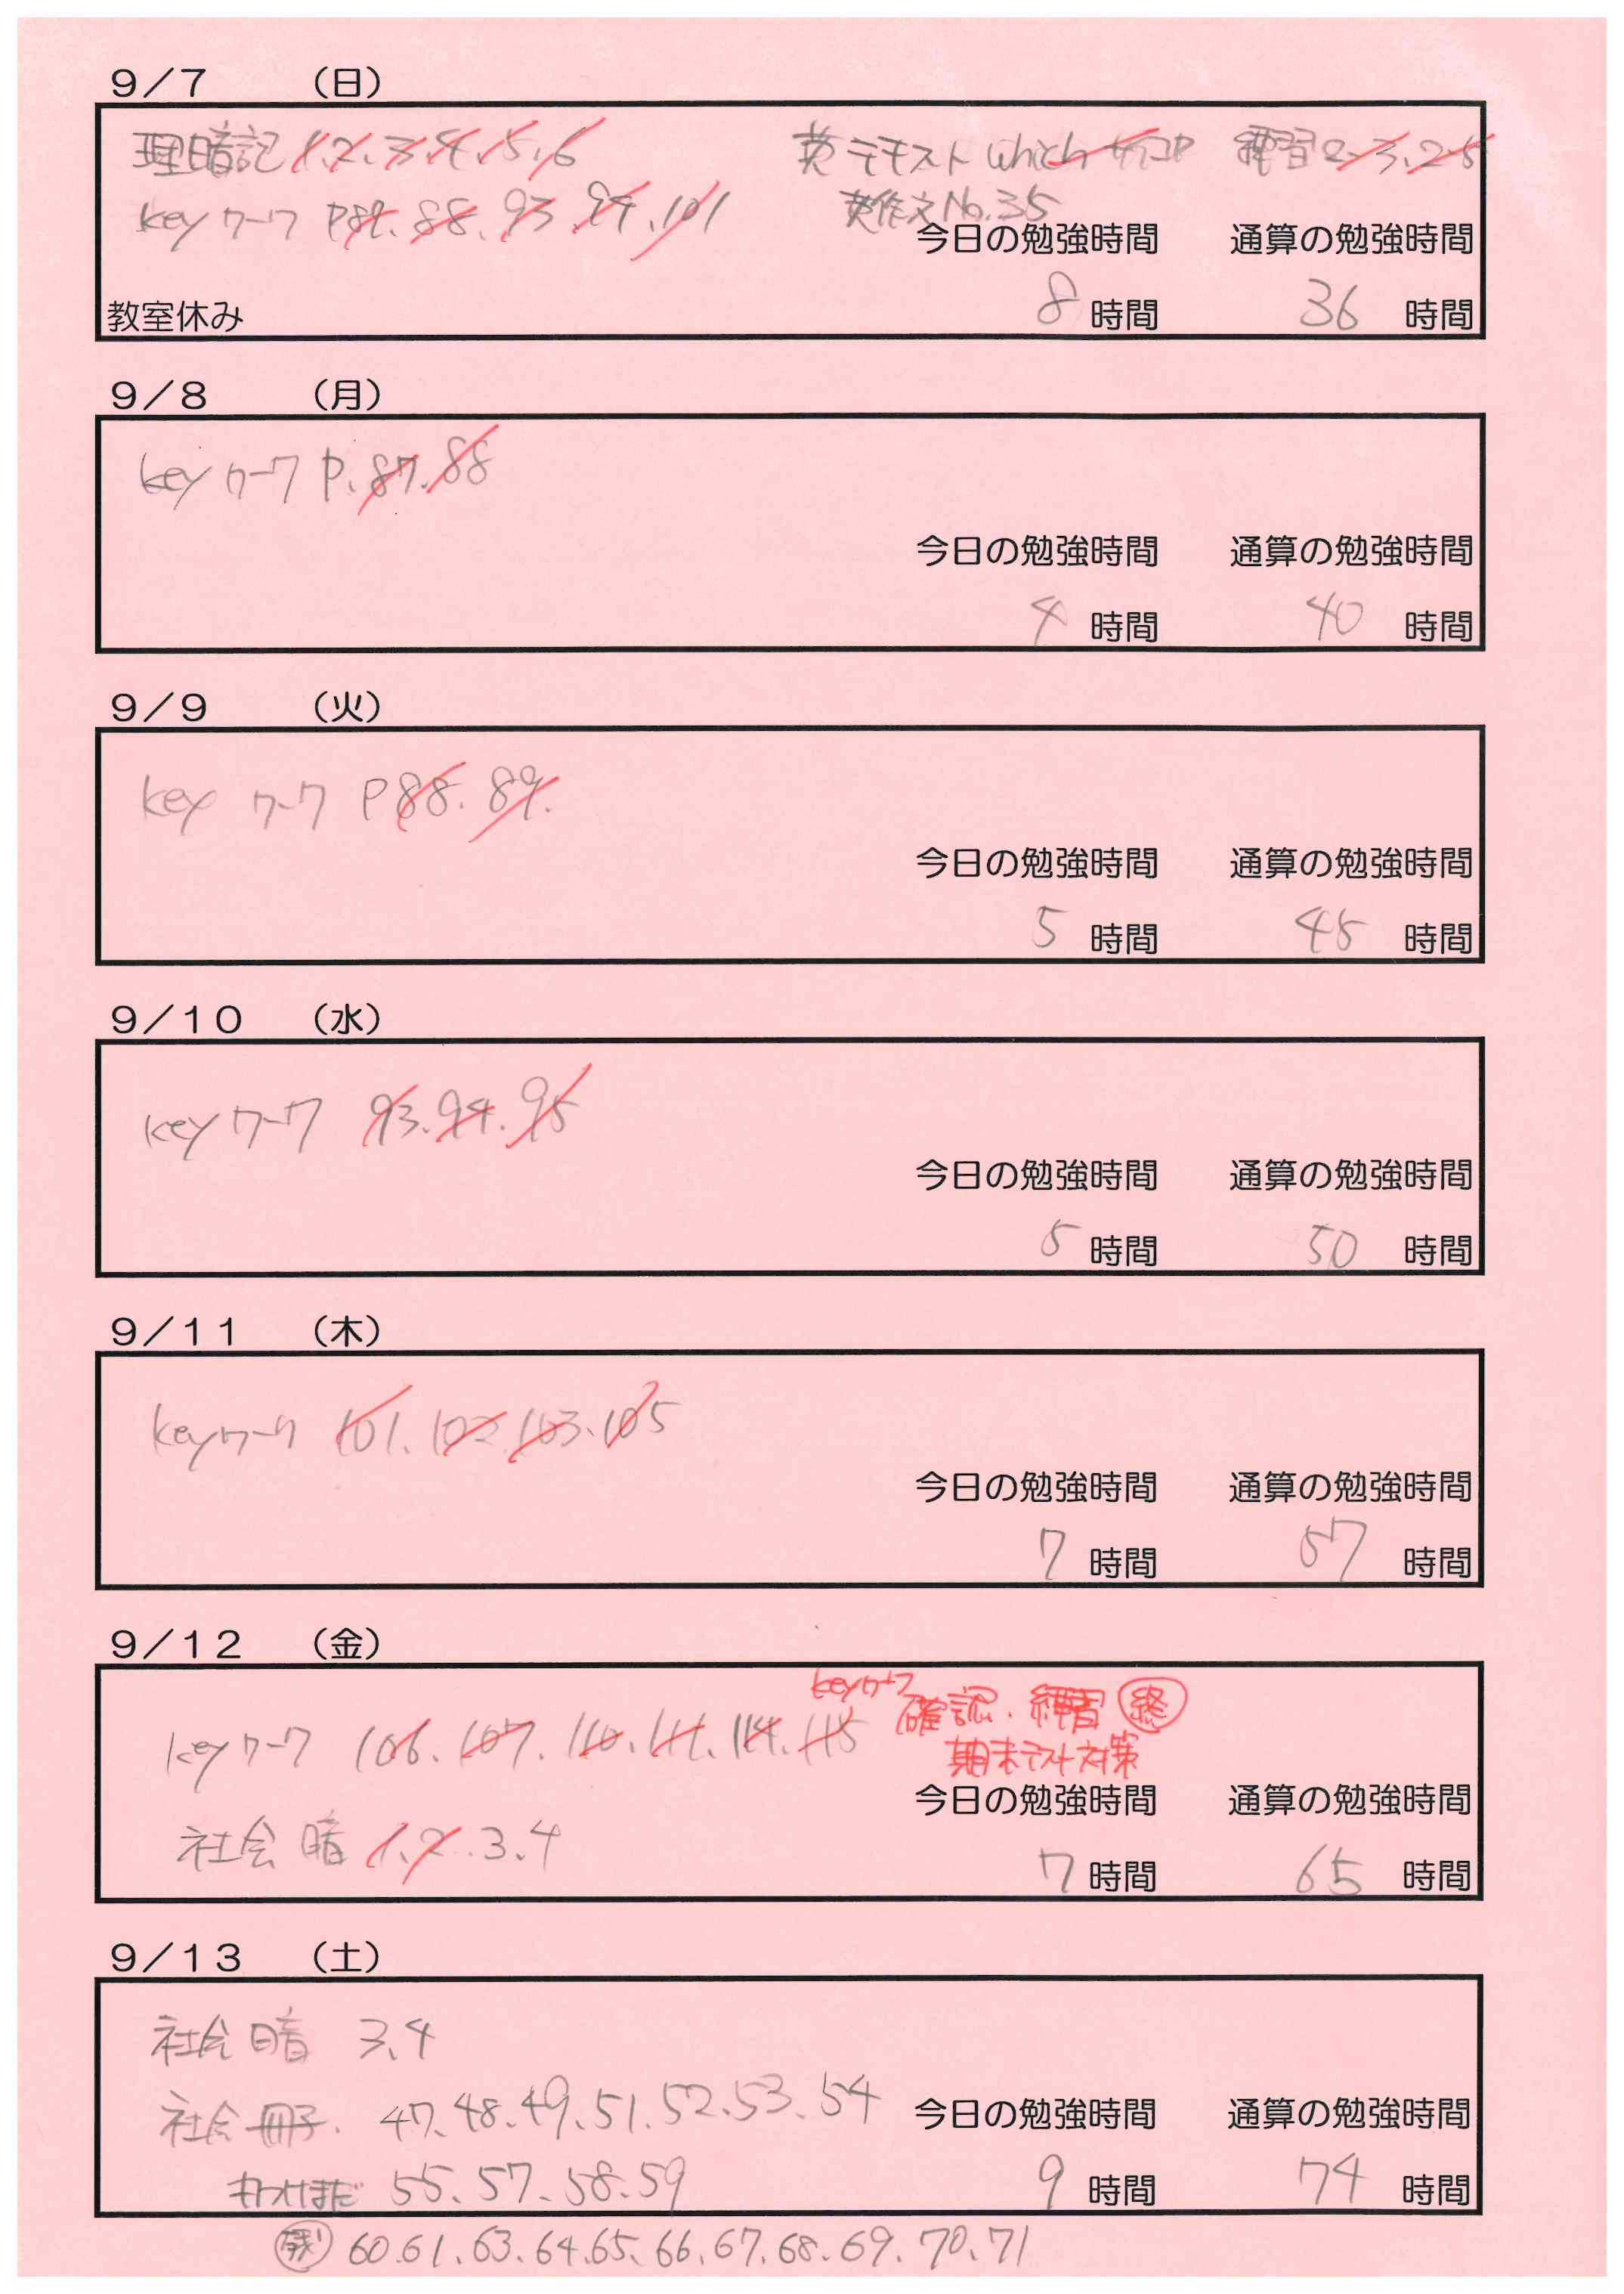 9/7 (日)
理暗記 1.2.3.4.5.6 英テキスト which 練習2-3.2-5
keyワーク P87.88.93.94.101 英作文No.35
今日の勉強時間 通算の勉強時間
教室休み 8 時間 36 時間
9/8 (月)
keyワーク P.87.88
今日の勉強時間 通算の勉強時間
4 時間 40 時間
9/9 (火)
key ワーク P88.89.
今日の勉強時間 通算の勉強時間
5 時間 45 時間
9/10 (水)
keyワーク 93.94.95
今日の勉強時間 通算の勉強時間
5 時間 50 時間
9/11 (木)
keyワーク 101.102.103.105
今日の勉強時間 通算の勉強時間
7 時間 57 時間
9/12 (金)
keyワーク 106.107.110.111.114.115 keyワーク 確認.練習 終
期末テスト対策
今日の勉強時間 通算の勉強時間
社会 暗 1.2.3.4
7 時間 65 時間
9/13 (土)
社会 暗 3.4
社会 冊子. 47.48.49.51.52.53.54
今日の勉強時間 通算の勉強時間
55.57.58.59 9 時間 74 時間
残り 60.61.63.64.65.66.67.68.69.70.71